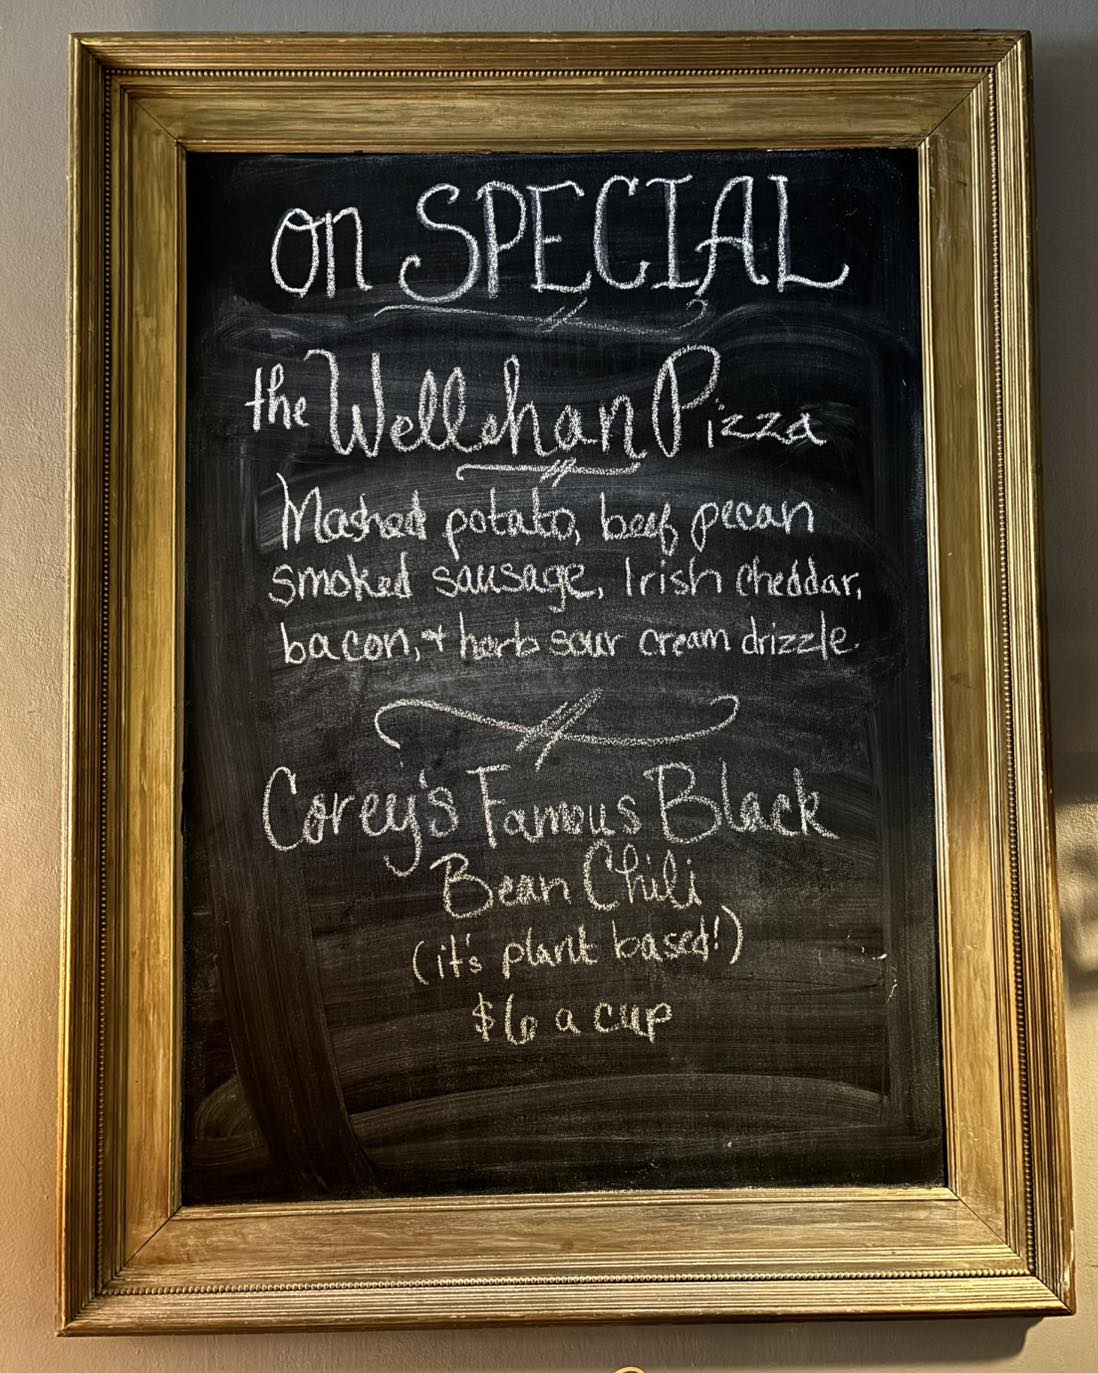 on SPECIAL
the Wellehan Pizza
Mashed potato, beef pecan
smoked sausage, Irish cheddar,
bacon, + herb sour cream drizzle.
Corey's Famous Black
Bean Chili
(it's plant based!)
$6 a cup